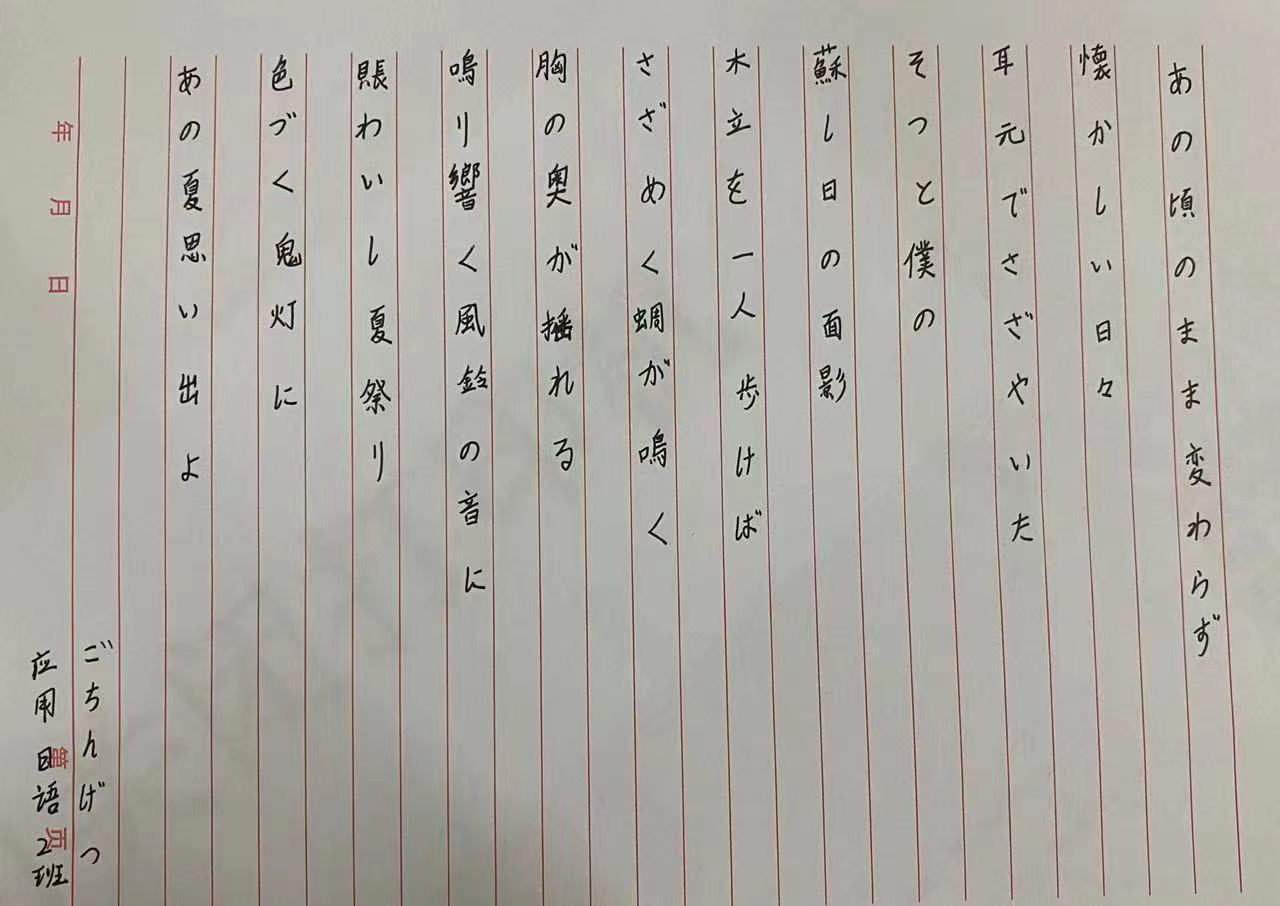 あの頃のまま変わらず
懐かしい日々
耳元でさざやいた
そつと僕の
蘇し日の面影
木立を一人歩けば
さざめく蜩が鳴く
胸の奥が揺れる
鳴り響く風鈴の音に
賑わいし夏祭り
色づく鬼灯に
あの夏思い出よ
ごちんげつ
应用日语2班
年 月 日
第 页